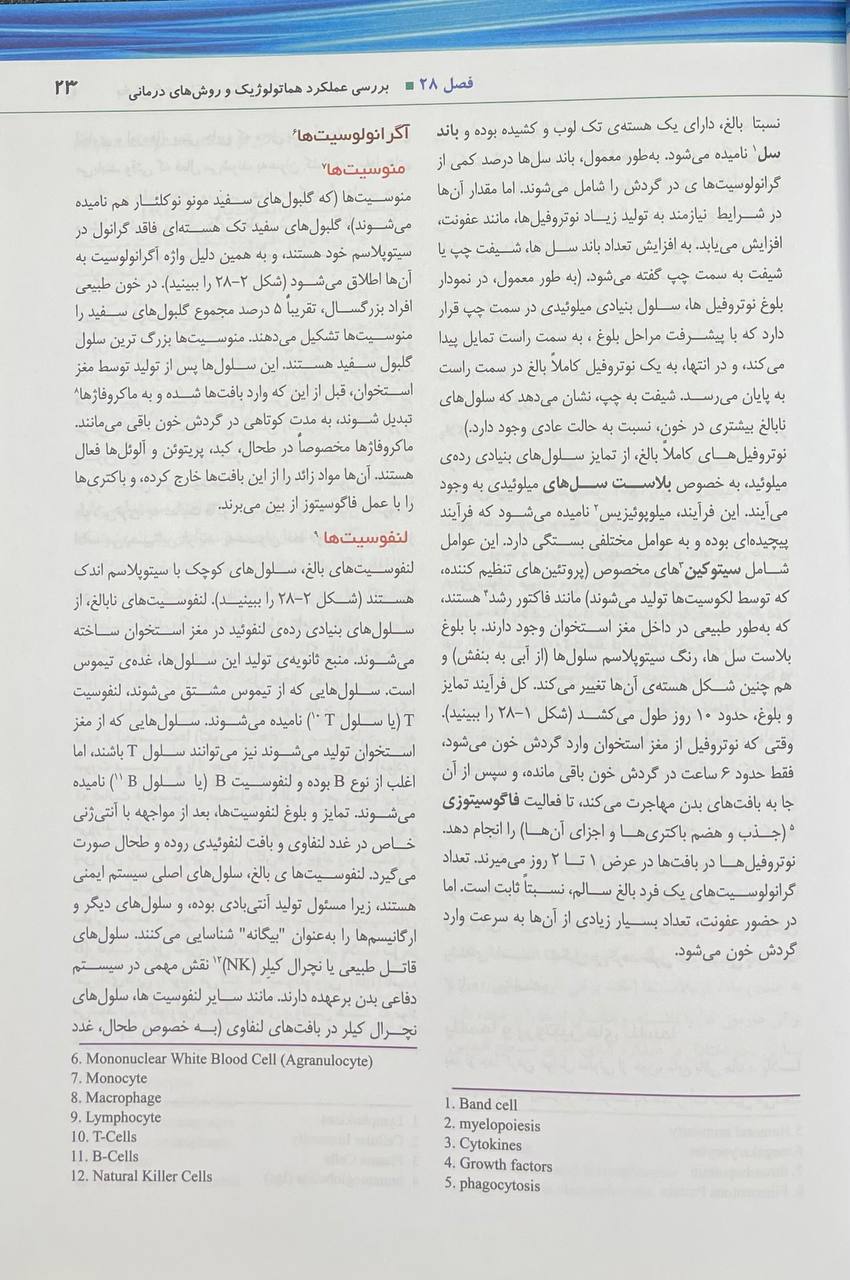 فصل ۲۸ ■ بررسی عملکرد هماتولوژیک و روش‌های درمانی ۲۳
نسبتا بالغ، دارای یک هسته‌ی تک لوب و کشیده بوده و باند
سل۱ نامیده می‌شود. به‌طور معمول، باند سل‌ها درصد کمی از
گرانولوسیت‌ها ی در گردش را شامل می‌شوند. اما مقدار آن‌ها
در شرایط نیازمند به تولید زیاد نوتروفیل‌ها، مانند عفونت،
افزایش می‌یابد. به افزایش تعداد باند سل ها، شیفت چپ یا
شیفت به سمت چپ گفته می‌شود. (به طور معمول، در نمودار
بلوغ نوتروفیل ها، سلول بنیادی میلوئیدی در سمت چپ قرار
دارد که با پیشرفت مراحل بلوغ ، به سمت راست تمایل پیدا
می‌کند، و در انتها، به یک نوتروفیل کاملاً بالغ در سمت راست
به پایان می‌رسد. شیفت به چپ، نشان می‌دهد که سلول‌های
نابالغ بیشتری در خون، نسبت به حالت عادی وجود دارد.)
نوتروفیل‌های کاملاً بالغ، از تمایز سلول‌های بنیادی رده‌ی
میلوئید، به خصوص بلاست سل‌های میلوئیدی به وجود
می‌آیند. این فرآیند، میلوپوئیزیس۲ نامیده می‌شود که فرآیند
پیچیده‌ای بوده و به عوامل مختلفی بستگی دارد. این عوامل
شامل سیتوکین۳های مخصوص (پروتئین‌های تنظیم کننده،
که توسط لکوسیت‌ها تولید می‌شوند) مانند فاکتور رشد۴ هستند،
که به‌طور طبیعی در داخل مغز استخوان وجود دارند. با بلوغ
بلاست سل ها، رنگ سیتوپلاسم سلول‌ها (از آبی به بنفش) و
هم چنین شکل هسته‌ی آن‌ها تغییر می‌کند. کل فرآیند تمایز
و بلوغ، حدود ۱۰ روز طول می‌کشد (شکل ۱-۲۸ را ببینید).
وقتی که نوتروفیل از مغز استخوان وارد گردش خون می‌شود،
فقط حدود ۶ ساعت در گردش خون باقی مانده، و سپس از آن
جا به بافت‌های بدن مهاجرت می‌کند، تا فعالیت فاگوسیتوزی
۵ (جذب و هضم باکتری‌ها و اجزای آن‌ها) را انجام دهد.
نوتروفیل‌ها در بافت‌ها در عرض ۱ تا ۲ روز می‌میرند. تعداد
گرانولوسیت‌های یک فرد بالغ سالم، نسبتاً ثابت است. اما
در حضور عفونت، تعداد بسیار زیادی از آن‌ها به سرعت وارد
گردش خون می‌شود.
1. Band cell
2. myelopoiesis
3. Cytokines
4. Growth factors
5. phagocytosis
آگرانولوسیت‌ها۶
منوسیت‌ها۷
منوسیت‌ها (که گلبول‌های سفید مونو نوکلئار هم نامیده
می‌شوند)، گلبول‌های سفید تک هسته‌ای فاقد گرانول در
سیتوپلاسم خود هستند، و به همین دلیل واژه آگرانولوسیت به
آن‌ها اطلاق می‌شود (شکل ۲-۲۸ را ببینید). در خون طبیعی
افراد بزرگسال، تقریباً ۵ درصد مجموع گلبول‌های سفید را
منوسیت‌ها تشکیل می‌دهند. منوسیت‌ها بزرگ ترین سلول
گلبول سفید هستند. این سلول‌ها پس از تولید توسط مغز
استخوان، قبل از این که وارد بافت‌ها شده و به ماکروفاژها۸
تبدیل شوند، به مدت کوتاهی در گردش خون باقی می‌مانند.
ماکروفاژها مخصوصاً در طحال، کبد، پریتوئن و آلوئل‌ها فعال
هستند. آن‌ها مواد زائد را از این بافت‌ها خارج کرده، و باکتری‌ها
را با عمل فاگوسیتوز از بین می‌برند.
لنفوسیت‌ها ۹
لنفوسیت‌های بالغ، سلول‌های کوچک با سیتوپلاسم اندک
هستند (شکل ۲-۲۸ را ببینید). لنفوسیت‌های نابالغ، از
سلول‌های بنیادی رده‌ی لنفوئید در مغز استخوان ساخته
می‌شوند. منبع ثانویه‌ی تولید این سلول‌ها، غده‌ی تیموس
است. سلول‌هایی که از تیموس مشتق می‌شوند، لنفوسیت
T (یا سلول T ۱۰) نامیده می‌شوند. سلول‌هایی که از مغز
استخوان تولید می‌شوند نیز می‌توانند سلول T باشند، اما
اغلب از نوع B بوده و لنفوسیت B (یا سلول B ۱۱) نامیده
می‌شوند. تمایز و بلوغ لنفوسیت‌ها، بعد از مواجهه با آنتی‌ژنی
خاص در غدد لنفاوی و بافت لنفوئیدی روده و طحال صورت
می‌گیرد. لنفوسیت‌ها ی بالغ، سلول‌های اصلی سیستم ایمنی
هستند، زیرا مسئول تولید آنتی‌بادی بوده، و سلول‌های دیگر و
ارگانیسم‌ها را به‌عنوان "بیگانه" شناسایی می‌کنند. سلول‌های
قاتل طبیعی یا نچرال کیلر (NK)۱۲ نقش مهمی در سیستم
دفاعی بدن برعهده دارند. مانند سایر لنفوسیت ها، سلول‌های
نچرال کیلر در بافت‌های لنفاوی (به خصوص طحال، غدد
6. Mononuclear White Blood Cell (Agranulocyte)
7. Monocyte
8. Macrophage
9. Lymphocyte
10. T-Cells
11. B-Cells
12. Natural Killer Cells